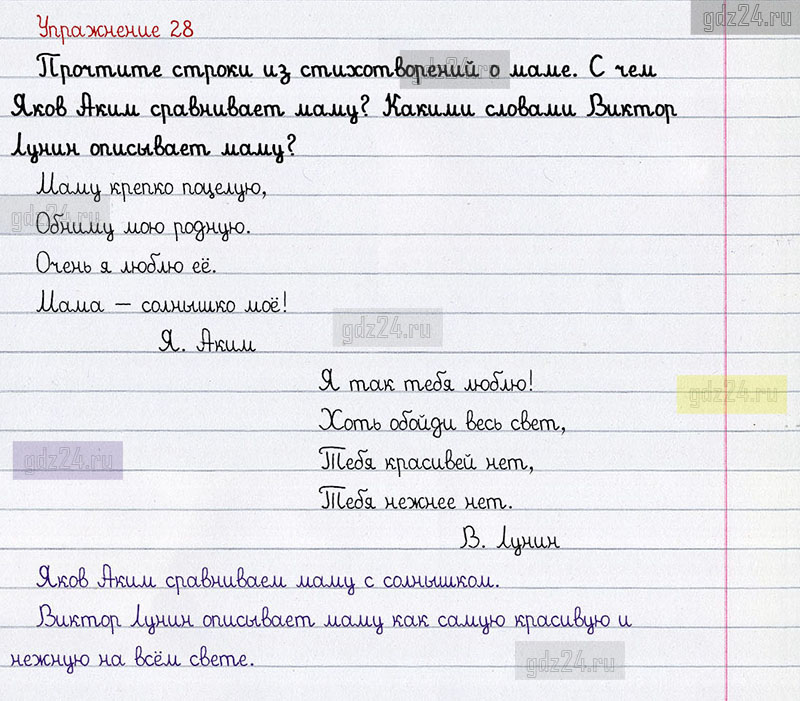 gdz24.ru
Упражнение 28
gdz24.ru
Прочтите строки из стихотворений о маме. С чем
Яков Аким сравнивает маму? Какими словами Виктор
Лунин описывает маму?
Маму крепко поцелую,
gdz24.ru
Обниму мою родную.
Очень я люблю её.
Мама – солнышко моё!
gdz24.ru
Я. Аким
Я так тебя люблю!
gdz24.ru
Хоть обойди весь свет,
gdz24.ru
Тебя красивей нет,
Тебя нежнее нет.
В. Лунин
Яков Аким сравниваем маму с солнышком.
Виктор Лунин описывает маму как самую красивую и
нежную на всём свете.
gdz24.ru